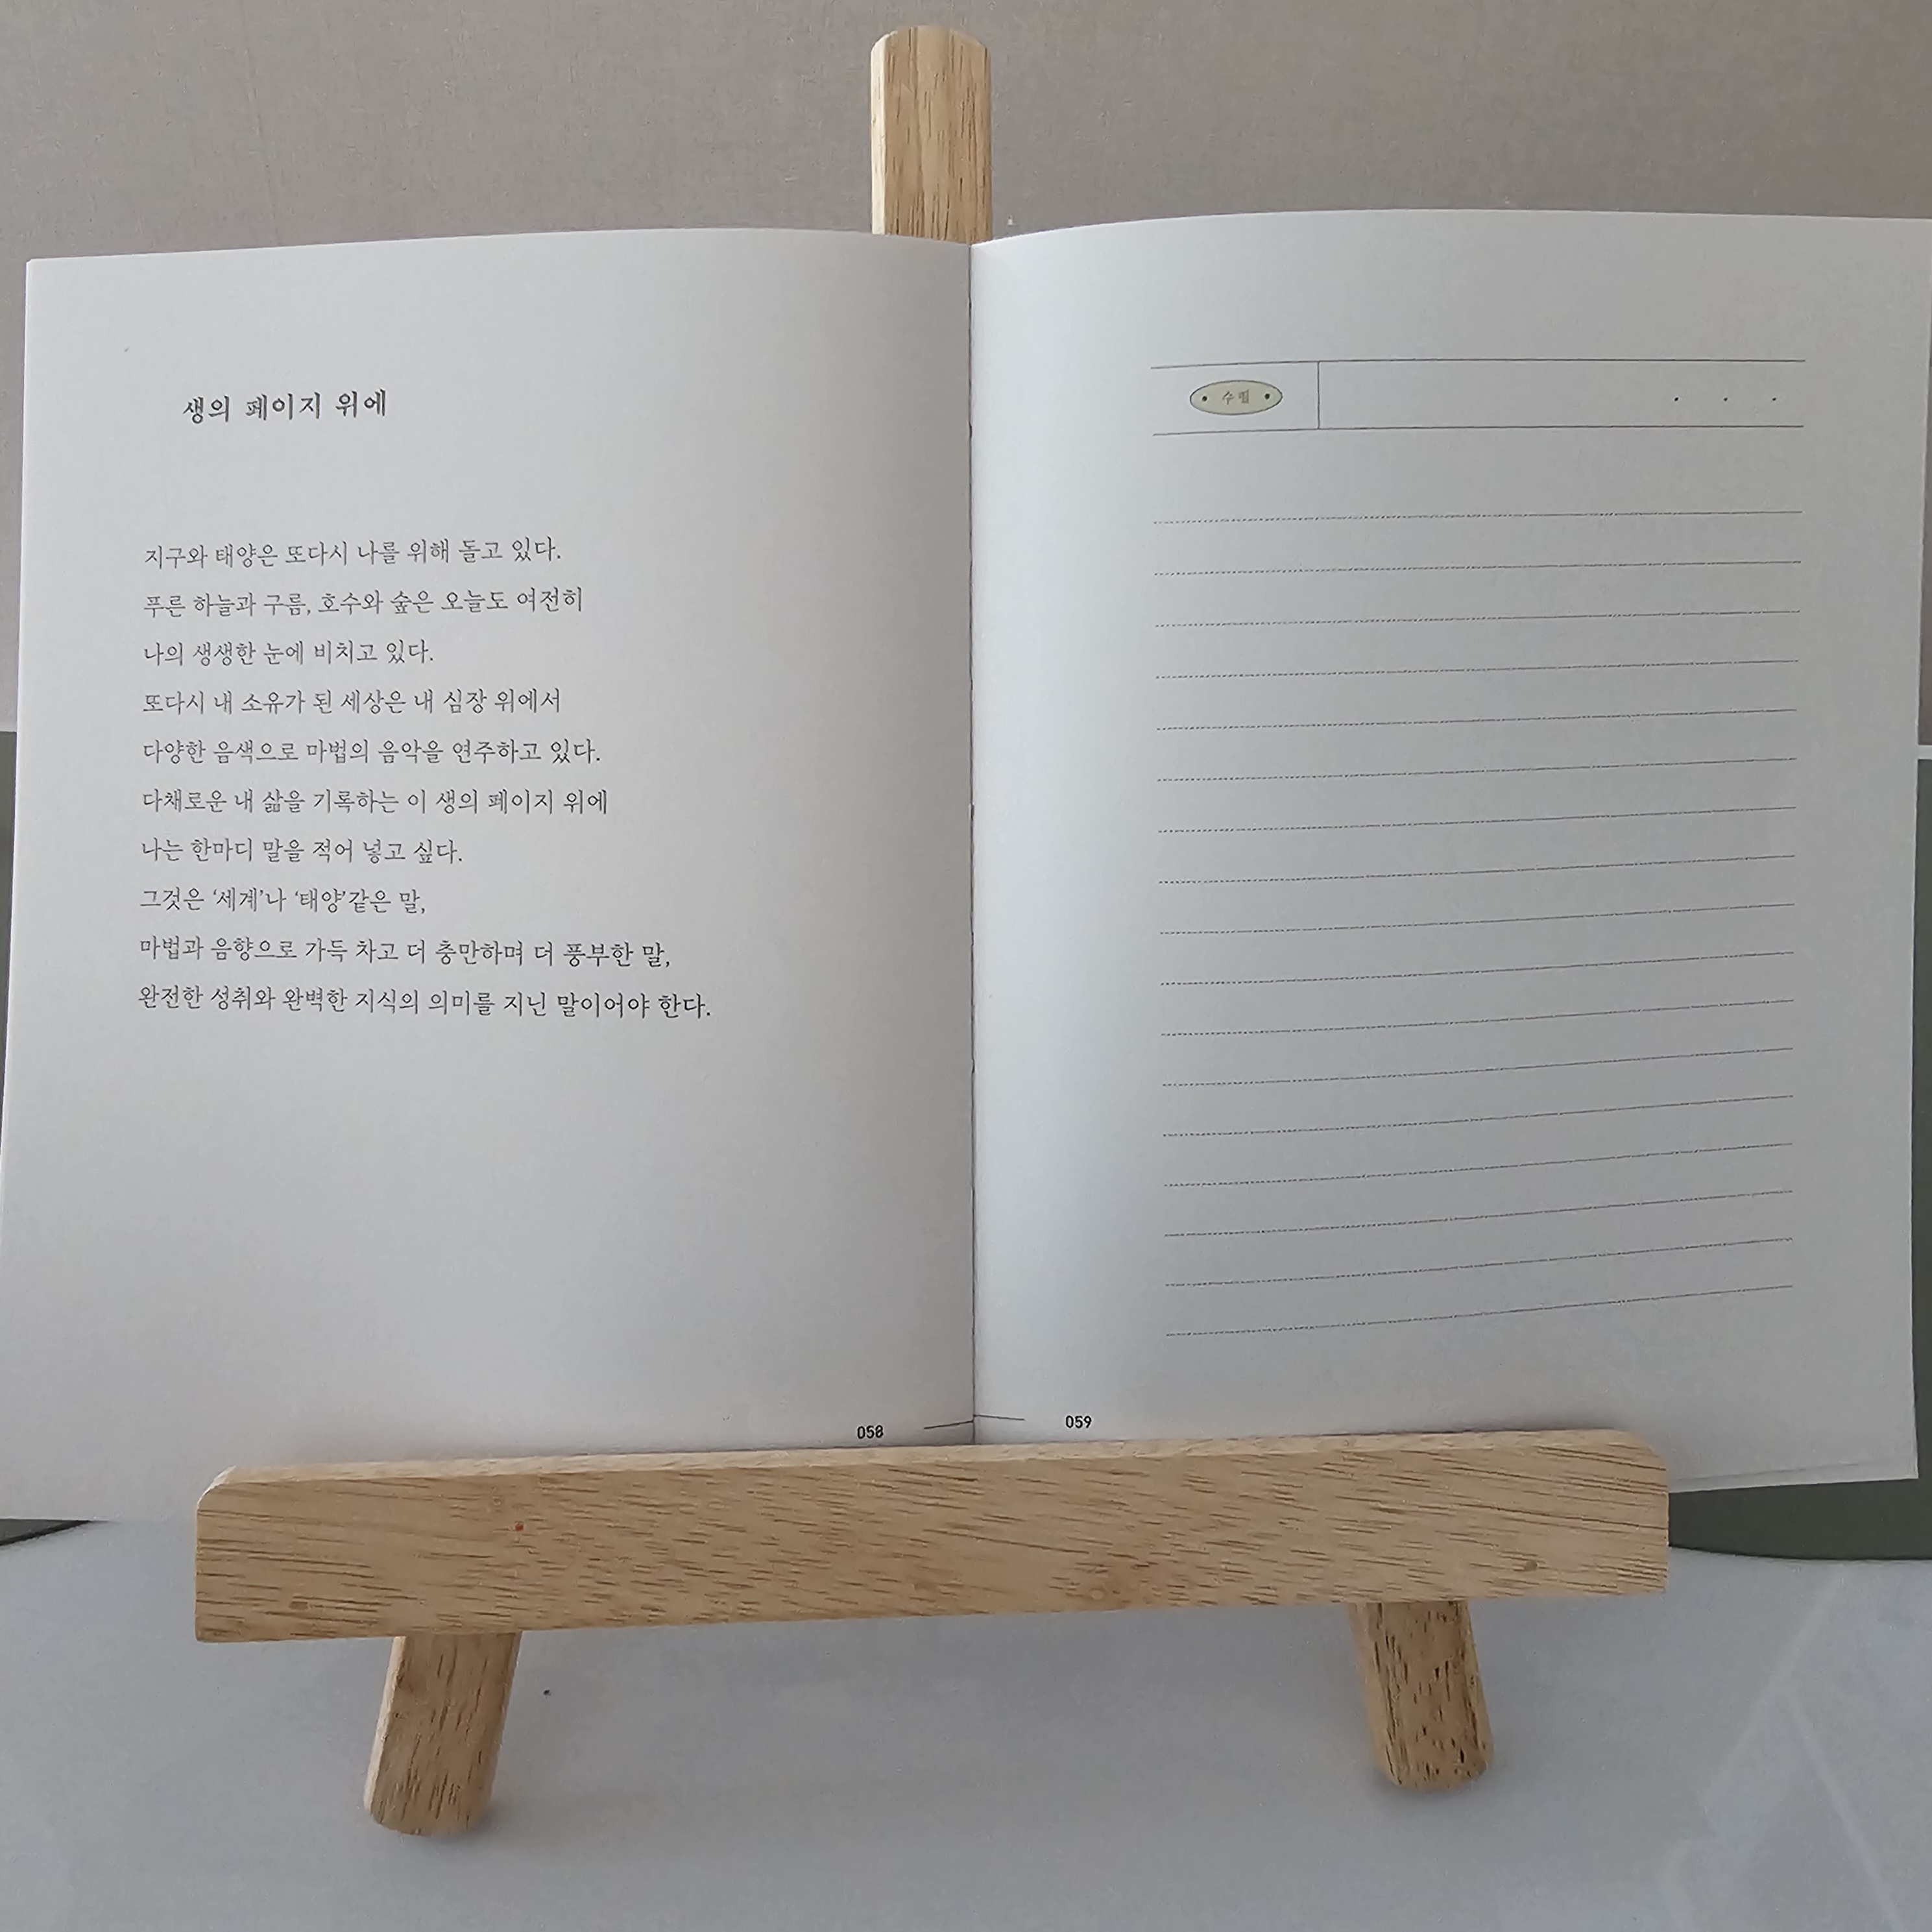 생의 페이지 위에
지구와 태양은 또다시 나를 위해 돌고 있다.
푸른 하늘과 구름, 호수와 숲은 오늘도 여전히
나의 생생한 눈에 비치고 있다.
또다시 내 소유가 된 세상은 내 심장 위에서
다양한 음색으로 마법의 음악을 연주하고 있다.
다채로운 내 삶을 기록하는 이 생의 페이지 위에
나는 한마디 말을 적어 넣고 싶다.
그것은 ‘세계’나 ‘태양’같은 말,
마법과 음향으로 가득 차고 더 충만하며 더 풍부한 말,
완전한 성취와 완벽한 지식의 의미를 지닌 말이어야 한다.
058
• 수필 •
. . .
059